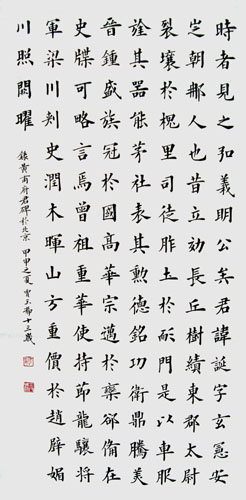 時者見之和義明公矣君諱誕字玄憲安
定朝那人也昔立功長丘樹績東郡太尉
裂壤於槐里司徒胙土於耏門是以車服
詮其器能茅社表其勳德銘功衛鼎騰美
晉鍾盛族冠於國高華宗邁於欒郤備在
史牒可略言焉曾祖重華使持節龍驤將
軍梁川刾史潤木暉山方重價於趙辟媚
川照闕曜
錄黃甫府君碑於北京 甲申之夏 十三歲